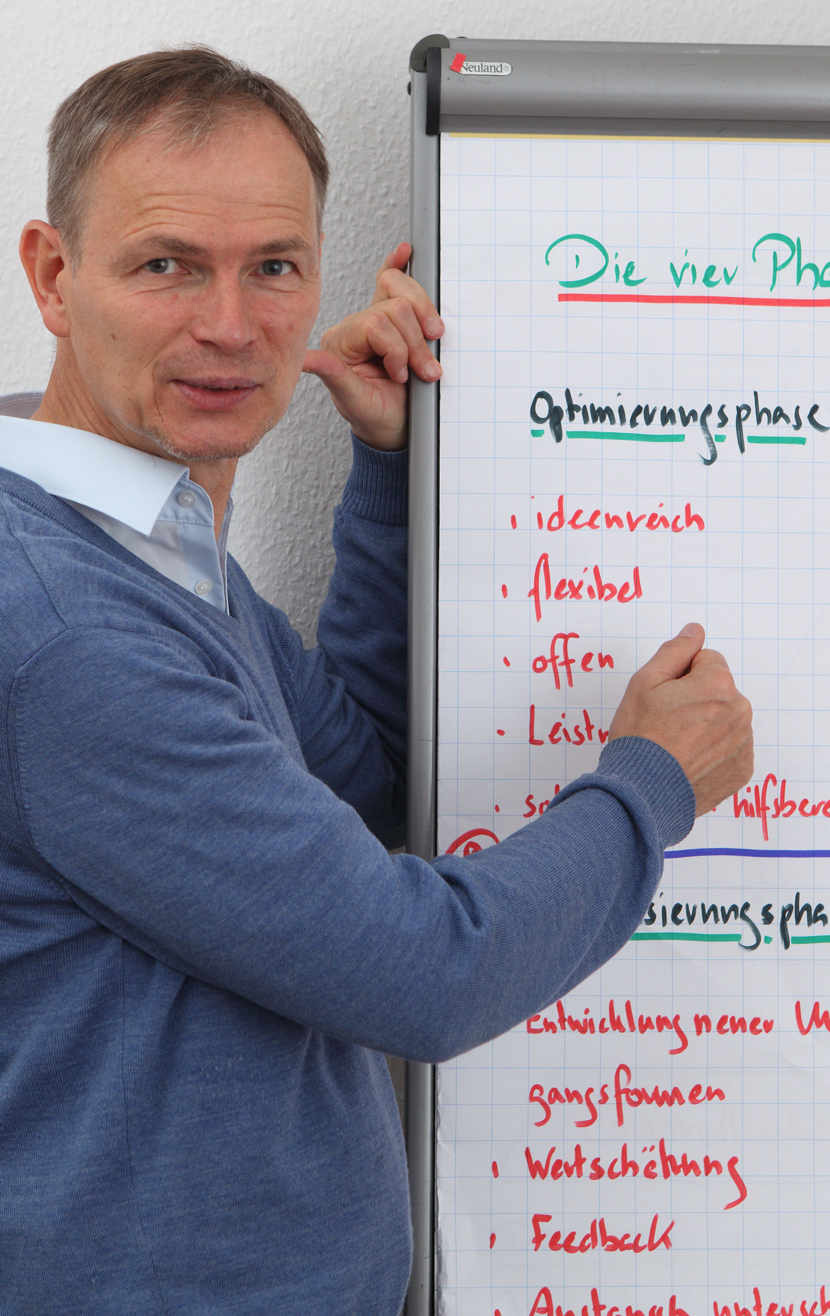 Neuland
Die vier Pha
Optimierungsphase
• ideenreich
• flexibel
• offen
• Leist
• hilfsbere
sierungspha
Entwicklung neuer Um
gangsformen
• Wertschätzung
• Feedback
• Austausch untersch